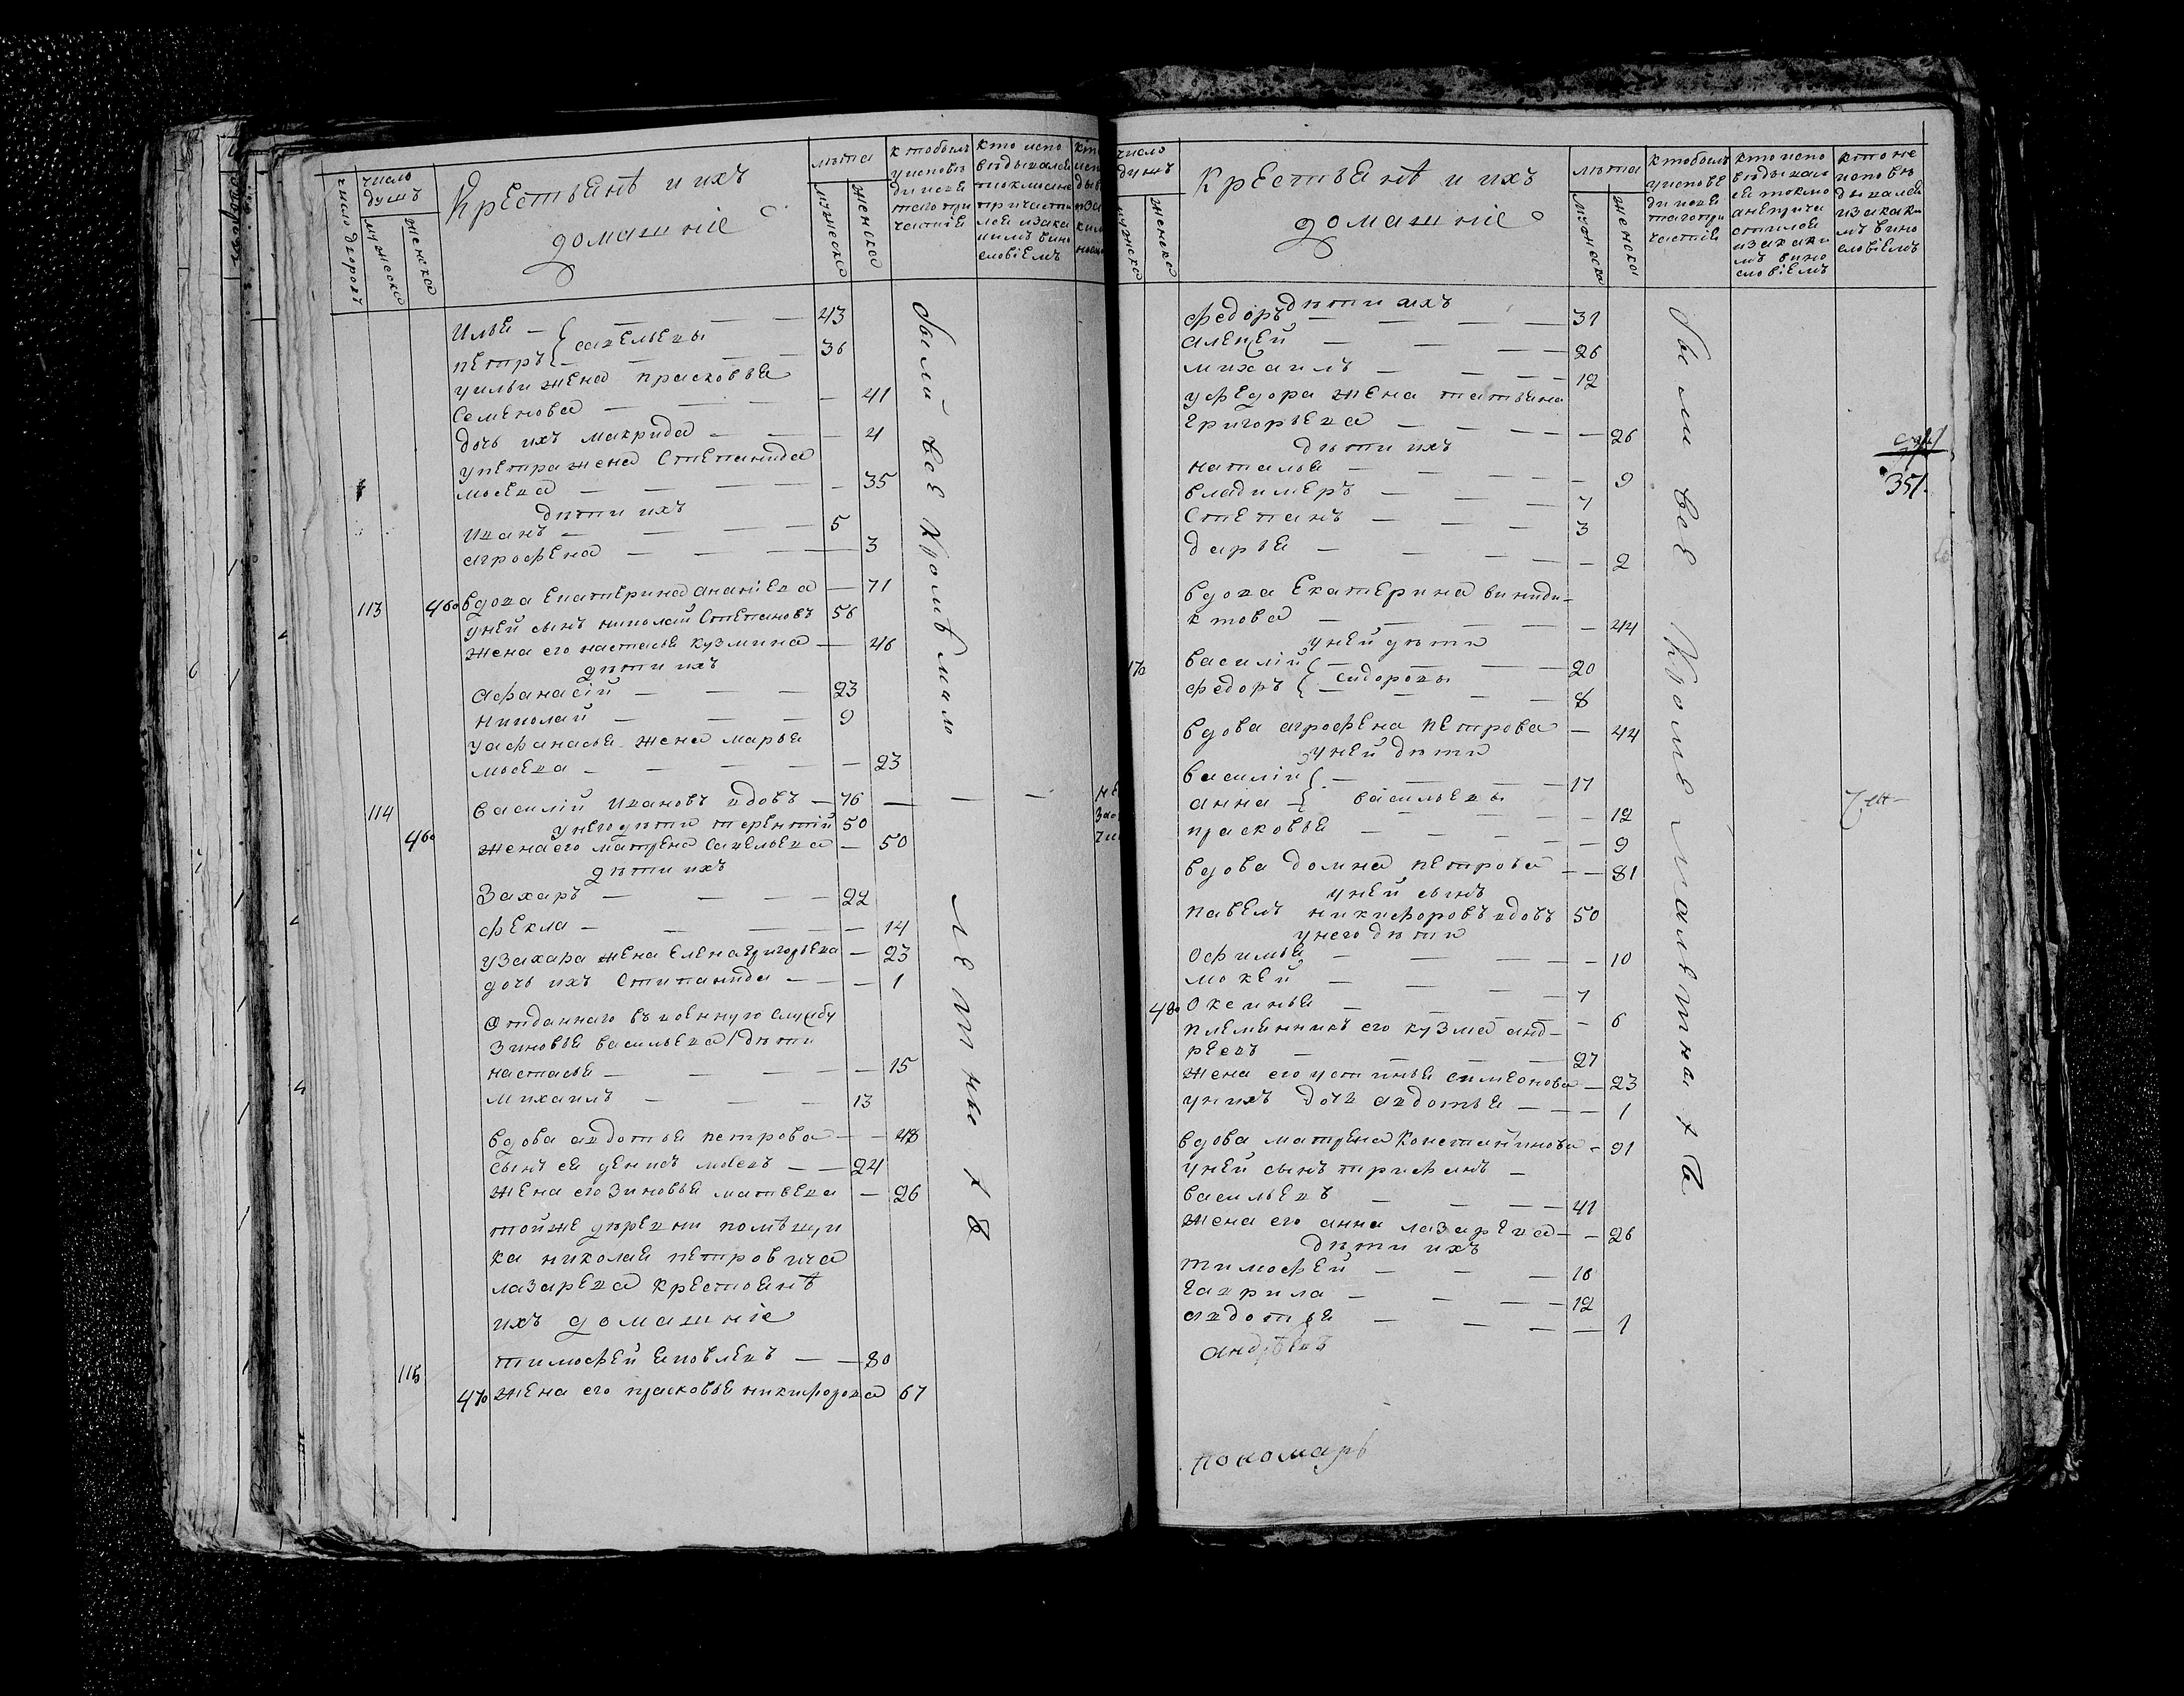 число дворовъ
число душъ
мужеска
женска
Крестьянѣ и ихъ
домашніе
лѣта
мужеска
женска
кто былъ
у исповѣ
ди и свя
таго при
частія
кто испо
вѣдывался
токмо а не
причасти
лся и за ка
кимъ вино
словіемъ
Илья — 43
савельевы
Петръ — 36
у ильи жена прасковья
Семенова — 41
дочь ихъ макрида — 4
у петра жена Степанида
мосева — 35
дѣти ихъ
Иванъ — 5
агрофена — 3
113 460 вдова Екатерина ананіева — 71
у ней сынъ николай Степановъ 56
жена его настасья кузмина — 46
дѣти ихъ
Афанасій — 23
николай — 9
у афанасья жена марья
мосева — 23
114 василій Ивановъ вдовъ — 76
у него дѣти терентій 50
460 жена его матрена савельева — 50
дѣти ихъ
Захаръ — 22
фекла — 14
у захара жена елена григорьева — 23
дочь ихъ Стипанида — 1
отданнаго въ военную службу
зиновья васильева дѣти
настасья — 15
михаилъ — 13
вдова авдотья петрова — 48
сынъ ея денисъ мосевъ — 24
жена его зиновья матвева — 26
той же дѣревни помѣщи
ка николая петровича
лазарева крестьянѣ
ихъ домашніе
115 тимофей яковлевъ — 80
470 жена его прасковья никифорова 67
были все кромѣ мало
летны х 8
число
душъ
мужеска
женска
Крестьянѣ и ихъ
домашніе
лѣта
мужеска
женска
кто былъ
у исповѣ
ди и свя
таго при
частія
кто испо
вѣдывал
ся токмо
а не прича
стился
и за каки
мъ вино
словіемъ
кто не
исповѣ
дывался
и за каки
мъ вино
словіемъ
дѣти ихъ
федоръ — 31
алексей — 26
михаилъ — 12
у федора жена татьяна
григорьева — 26
дѣти ихъ
наталья — 9
владимеръ — 7
Степанъ — 3
дарья — 2
вдова Екатерина виниди
ктова — 44
у ней дѣти
170 василій — 20
сидоровы
федоръ — 8
вдова агрофена петрова — 44
у ней дѣти
василій — 17
анна — васильевы — 12
прасковья — 9
вдова домна петрова — 81
у ней сынъ
павелъ никифоровъ вдовъ 50
у него дѣти
Офимья — 10
мокей — 7
480 Оксинья — 6
племянникъ его кузма анд
реевъ — 27
жена его устинья симеонова — 23
у нихъ дочь авдотья — 1
вдова матрена Константинова — 91
у ней сынъ трифанъ —
васильевъ — 41
жена его анна лазарева — 26
дѣти ихъ
тимофей — 16
гаврила — 12
авдотья — 1
андрѣевъ
пономарь
были все кроме малетна х 6
351.